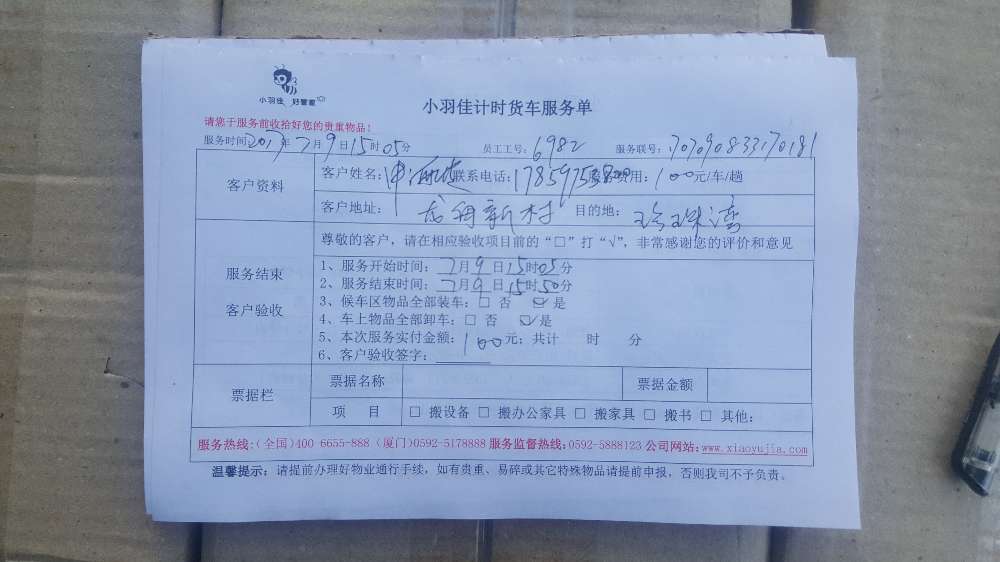 小羽佳 好管家
小羽佳计时货车服务单
请您于服务前收拾好您的贵重物品！
服务时间：2017年7月9日15时05分 员工工号：6982 服务联号：
客户资料
客户姓名： 联系电话： 服务费用：100元/车/趟
客户地址： 新村 目的地： 珍珠湾
服务结束
客户验收
尊敬的客户，请在相应验收项目前的“□”打“√”，非常感谢您的评价和意见
1、服务开始时间：7月9日15时05分
2、服务结束时间：7月9日15时50分
3、候车区物品全部装车：□ 否 ☑ 是
4、车上物品全部卸车：□ 否 ☑ 是
5、本次服务实付金额：100元；共计 时 分
6、客户验收签字：
票据栏
票据名称 票据金额
项 目 □ 搬设备 □ 搬办公家具 □ 搬家具 □ 搬书 □ 其他：
服务热线：（全国）400 6655-888（厦门）0592-5178888 服务监督热线：0592-5888123 公司网站：www.xiaoyujia.com
温馨提示：请提前办理好物业通行手续，如有贵重、易碎或其它特殊物品请提前申报，否则我司不予负责。